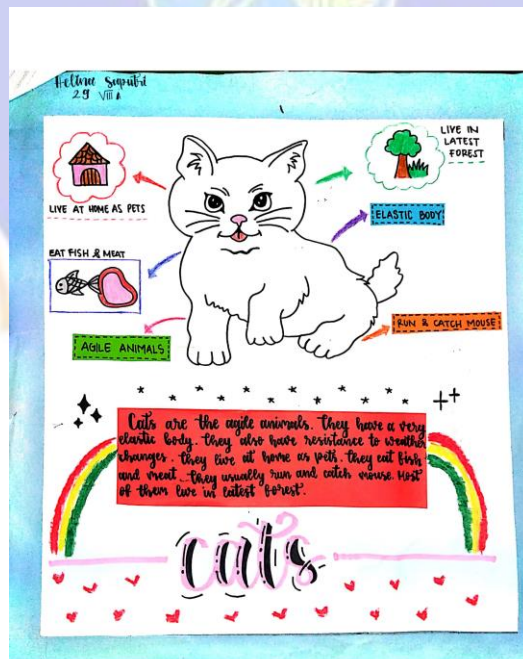 Helina Saputri
29 VIII A
LIVE AT HOME AS PETS
LIVE IN
LATEST
FOREST
ELASTIC BODY
EAT FISH & MEAT
AGILE ANIMALS
RUN & CATCH MOUSE
Cats are the agile animals. They have a very
elastic body. they also have resistance to weather
changes. they live at home as pets. they eat fish
and meat. they usually run and catch mouse. Most
of them live in latest forest.
cats